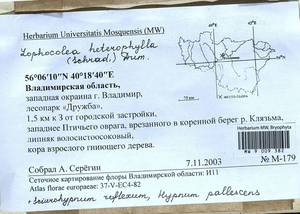 Herbarium Universitatis Mosquensis (MW)
Lophocolea heterophylla
(Schrad.) Dum.
56°06'10"N 40°18'40"E
Владимирская область,
западная окраина г. Владимир,
лесопарк «Дружба»,
1,5 км к З от городской застройки,
западнее Птичьего оврага, врезанного в коренной берег р. Клязьма,
липняк волосистоосоковый,
кора взрослого гниющего дерева.
Herbarium MW, Bryophyta
MW 9 009 382
Собрал А. Серёгин
7.11.2003
№ М-179
Сеточное картирование флоры Владимирской области: И11
Atlas florae europaeae: 37-V-EC4-82
+ Sciurohypnum reflexum, Hypnum pallescens